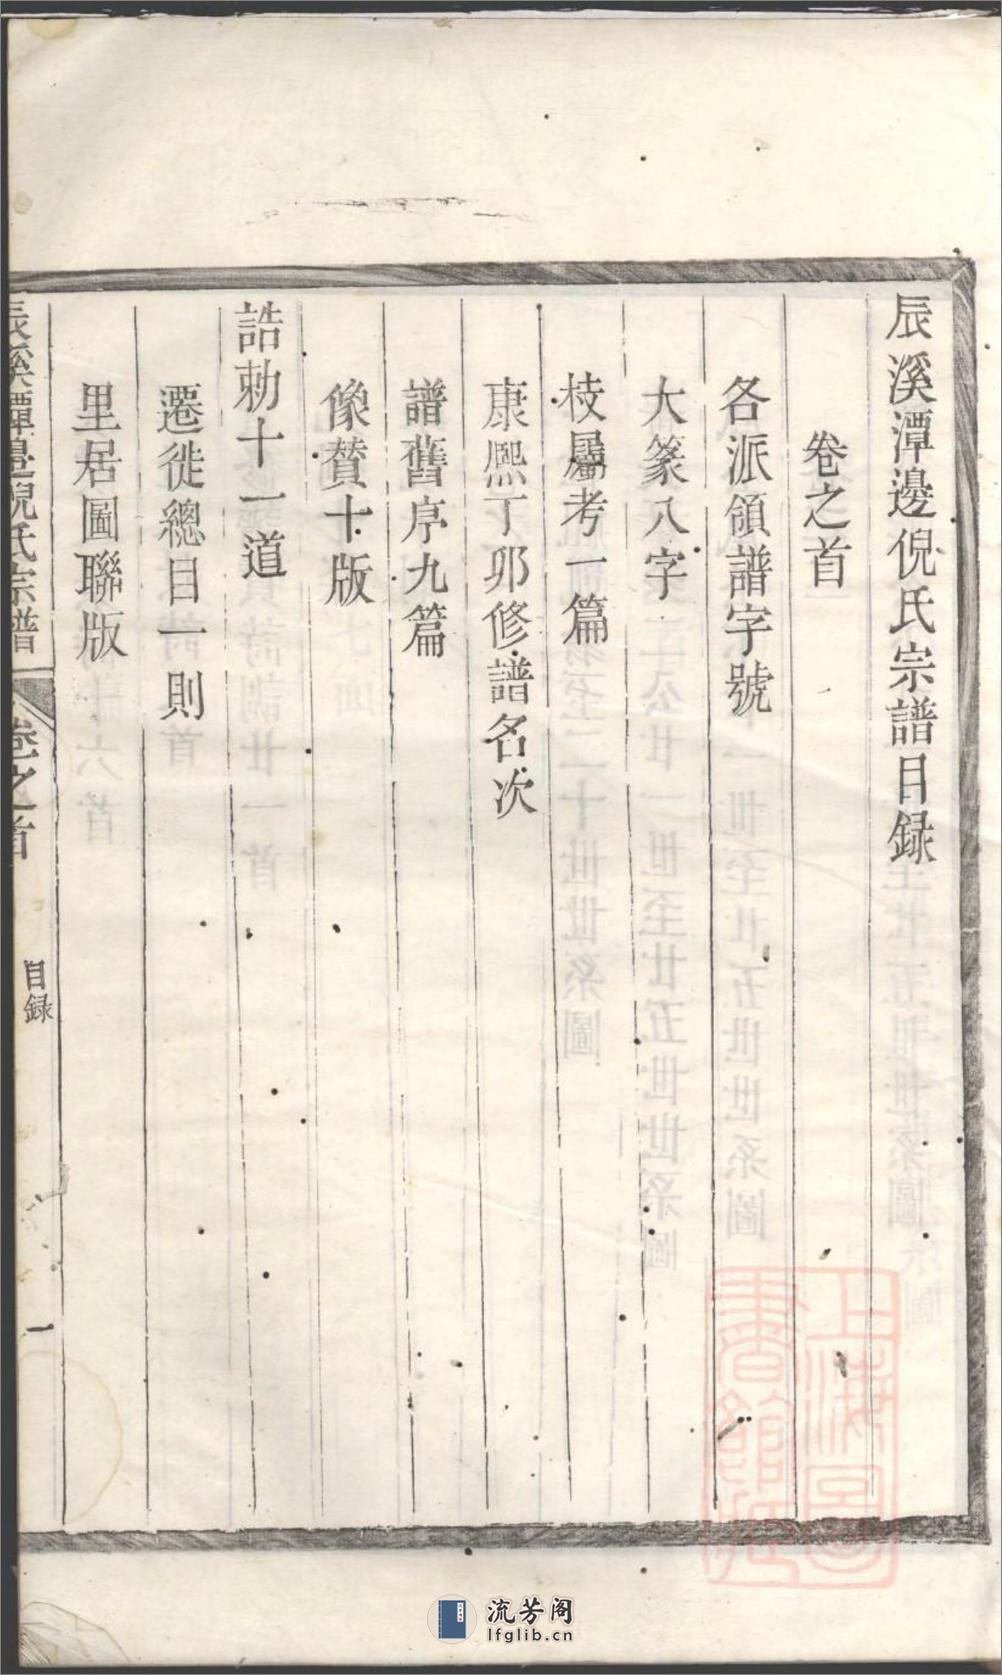 辰溪潭邊倪氏宗譜目録
卷之首
各派領譜字號
大篆八字
枝屬考一篇
康熙丁夘修譜名次
譜舊序九篇
像賛十版
誥勅十一道
遷徙總目一則
里居圖聯版
辰溪潭邊倪氏宗譜
卷之首
目録
一
上海圖
書館藏
流芳阁
lfglib.cn